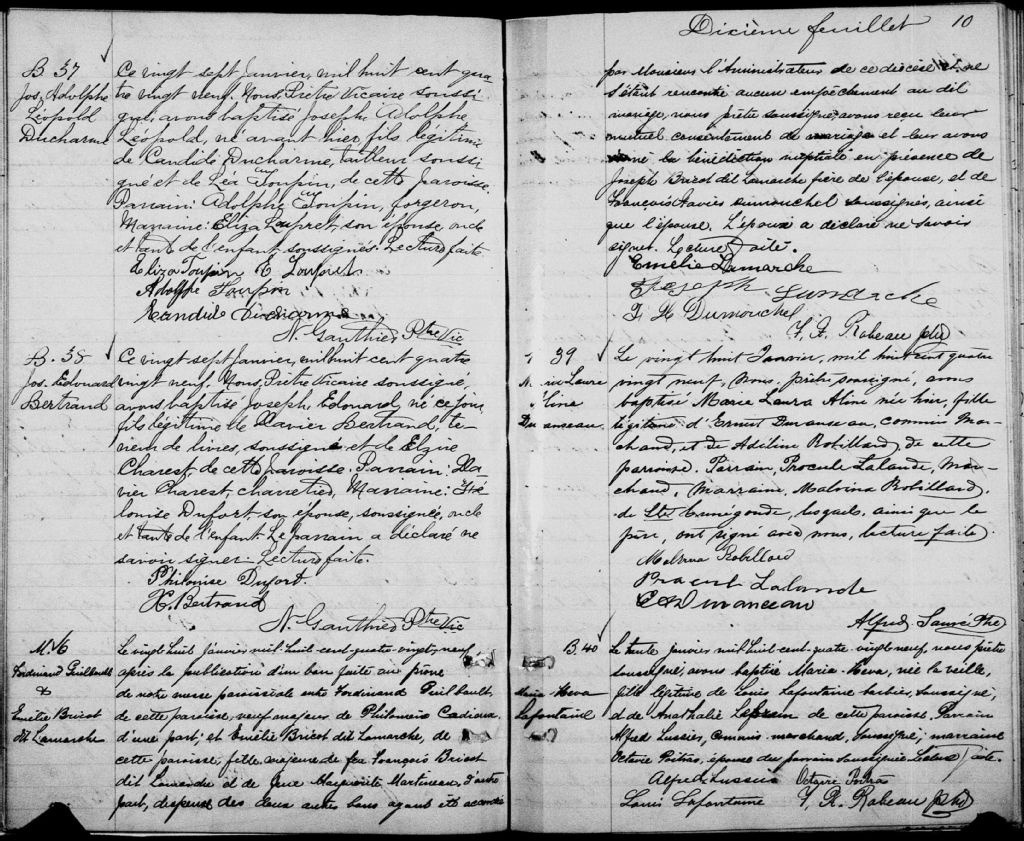 B 37
Jos. Adolphe
Léopold
Ducharme
Ce vingt sept Janvier, mil huit cent qua
tre vingt neuf, Nous, Prêtre Vicaire soussi
gné, avons baptisé Joseph Adolphe
Léopold, né avant hier, fils légitime
de Candide Ducharme, tailleur soussi
gné et de Léa Toupin, de cette paroisse.
Parrain: Adolphe Toupin, forgeron,
Marraine: Eliza Laupret, son épouse, oncle
et tante de l'enfant soussignés. Lecture faite
Eliza Toupin
Adolphe Toupin
Candide Ducharme
N. Gauthier Ptre Vic
B. 38
Jos. Edouard
Bertrand
Ce vingt sept Janvier, mil huit cent quatre
vingt neuf. Nous, Prêtre Vicaire soussigné,
avons baptisé Joseph, Edouard, né ce jour,
fils légitime de Xavier Bertrand, te-
neur de livres, soussigné et de Elzire
Charest de cette paroisse. Parrain: Xa-
vier Charest, charretier, Marraine: Phi-
lomise Dufort, son épouse, soussignée, oncle
et tante de l'enfant. Le parrain a déclaré ne
savoir signer. Lecture faite.
Philouise Dufort.
X. Bertrand
N. Gauthier Ptre Vic
M. 6
Ferdinand Guilbault
&
Emélie Bricot
dit Lamarche
Le vingt huit janvier mil huit cent quatre vingt neuf,
après la publication d'un ban faite au prône
de notre messe paroissiale entre Ferdinand Guilbault,
de cette paroisse, veuf majeur de Philomène Cadieux
d'une part; et Emélie Bricot dit Lamarche, de
cette paroisse, fille majeure de feu François Bricot
dit Lamarche et de feue Marguerite Martineau, d'autre
part, dispense des deux autres bans ayant été accordée
Dixième feuillet 10
par Monsieur l'Administrateur de ce diocèse et ne
s'étant rencontré aucun empêchement au dit
mariage, nous prêtre soussigné, avons reçu leur
mutuel consentement de mariage et leur avons
la bénédiction nuptiale en présence de
Joseph Bricot dit Lamarche frère de l'épouse, et de
François Xavier Dumouchel soussignés, ainsi
que l'épouse. L'époux a déclaré ne savoir
signer. Lecture faite.
Emélie Lamarche
Joseph Lamarche
F X Dumouchel
F. A. Rabeau ptre
39
Marie Laura
Aline
Duranceau
Le vingt huit Janvier, mil huit cent quatre
vingt neuf, Nous prêtre soussigné, avons
baptisé Marie Laura Aline née hier, fille
légitime d'Ernest Duranseau, commis Mar-
chand, et de Adéline Robillard, de cette
parroisse. Parrain, Procule Lalande, Mar-
chand, Marraine, Malvina Robillard.
de Ste Cunégonde, lesquels, ainsi que le
père, ont signé avec nous, lecture faite.
Malvina Robillard
Procul Lalande
E Duranceau
Alfred Sauvé Ptre
B. 40
Maria Heva
Lafontaine
Le trente janvier mil huit cent quatre vingt neuf, nous prêtre
soussigné, avons baptisé Maria Heva, née la veille,
fille légitime de Louis Lafontaine barbier, soussigné,
et de Anathalie de cette paroisse. Parrain
Alfred Lussier, commis marchand, soussigné; marraine
Octavie Poitras, épouse du parrain soussignée Lecture faite.
Alfred Lussier Octavie Poitra
Louis Lafontaine F. A. Rabeau ptre